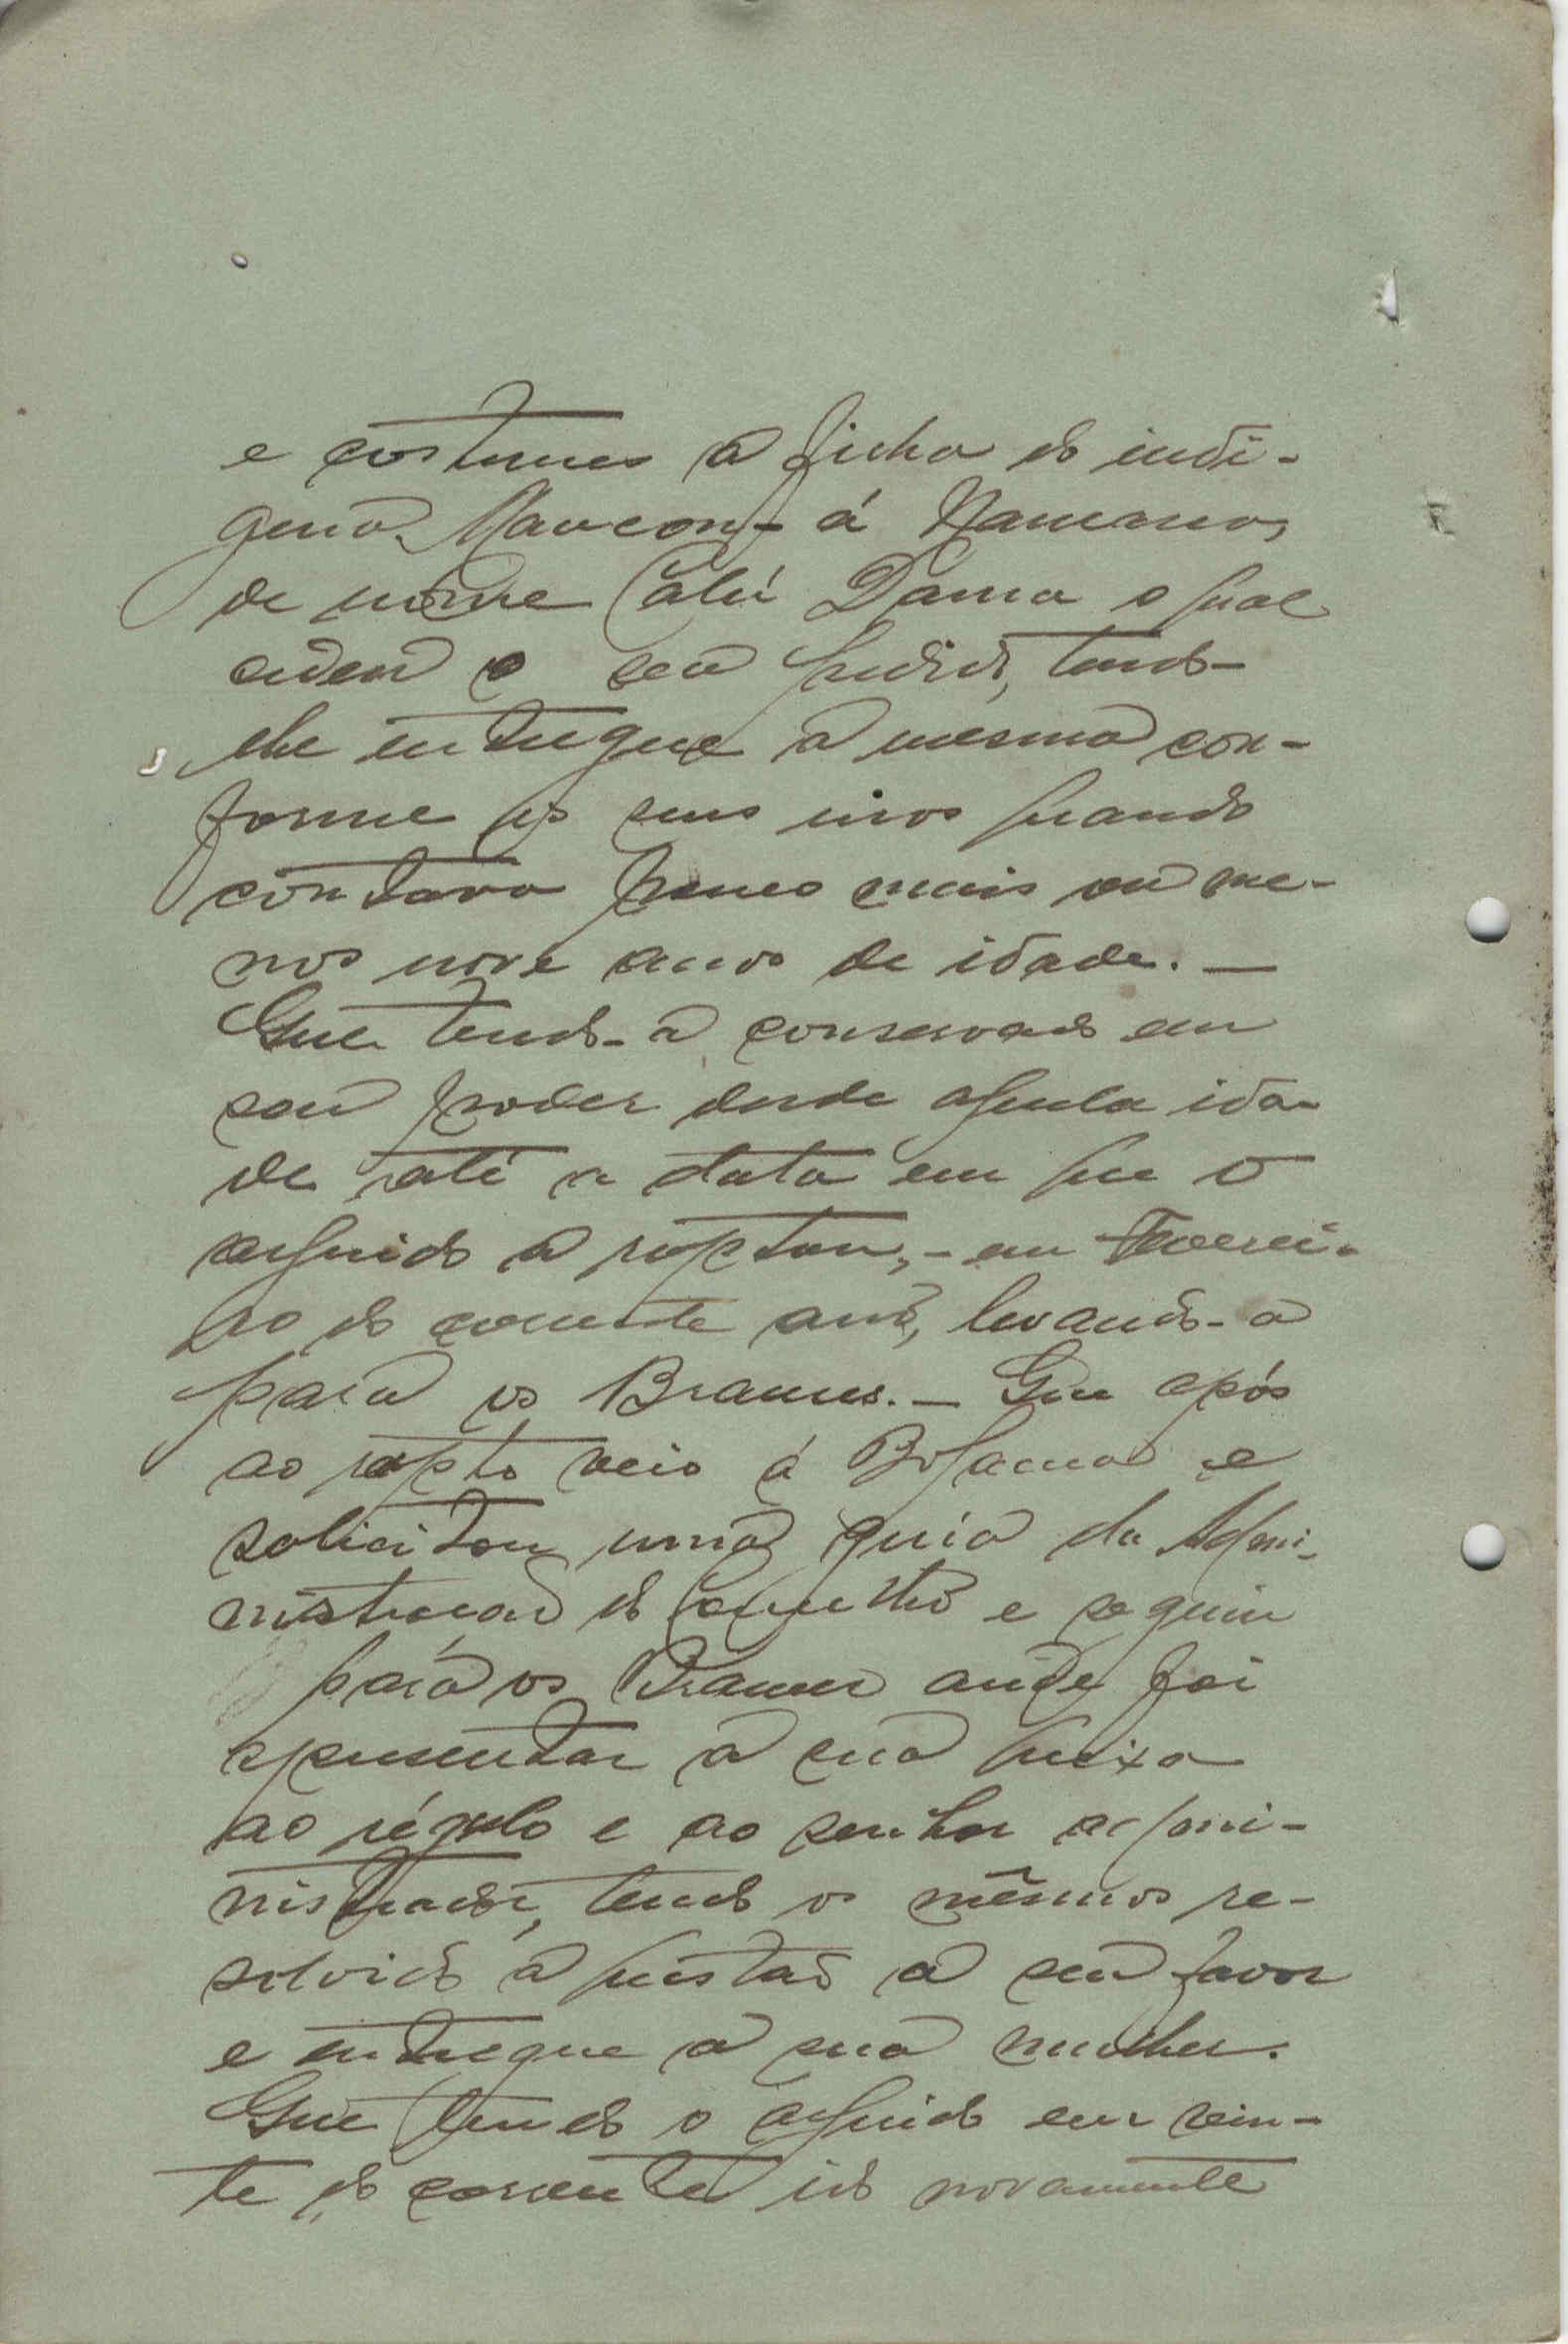 e costumes a filha do indi-
gena Mancon- á Namano,
de nome Calú Dama o qual
cedeu o seu pedido, tendo-
lhe entregue a mesma con-
forme os seus usos quando
contava pouco mais ou me-
nos nove anos de idade. —
Que tendo-a conservado em
seu poder desde aquela ida-
de até a data em que o
arguido a raptou, - em Feverei-
ro do corrente ano, levando-a
para os Brames. — Que após
ao rapto veio á Bolama e
solicitou uma guia da Admi-
nistração do Concelho e seguiu
para os Brames onde foi
apresentar a sua queixa
ao régulo e ao senhor admi-
nistrador, tendo os mêsmos re-
solvido a questão a seu favor
e entregue a sua mulher.
Que tendo o arguido em vin-
te do corrente ido novamente